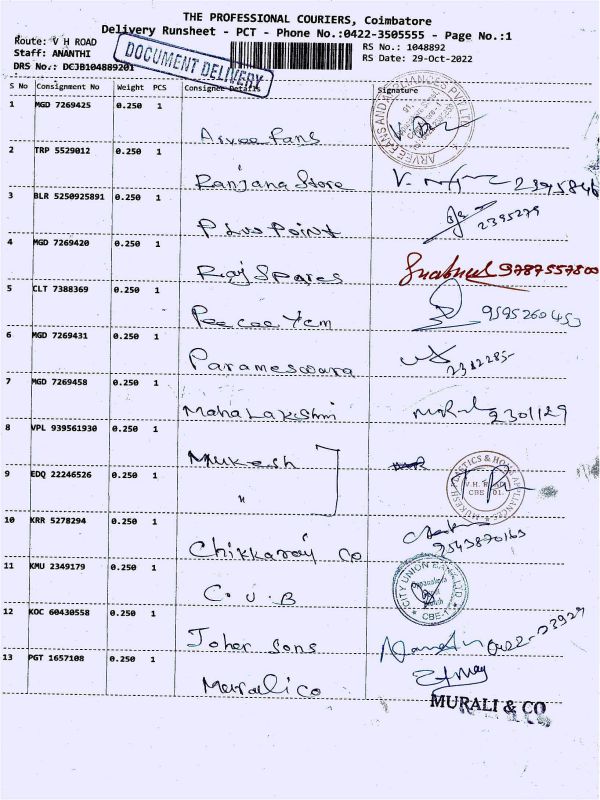 THE PROFESSIONAL COURIERS, Coimbatore
Delivery Runsheet - PCT - Phone No.:0422-3505555 - Page No.:1
Route: V H ROAD
Staff: ANANTHI
DRS No.: DCJB104889201
DOCUMENT DELIVERY
RS No.: 1048892
RS Date: 29-Oct-2022
S No Consignment No Weight PCS Consignee Details Signature
1 MGD 7269425 0.250 1
Arvee Fans
2 TRP 5529012 0.250 1
Ranjana Store 2395846
3 BLR 5250925891 0.250 1
Plus Point 2395279
4 MGD 7269420 0.250 1
Raj Spares 9787557800
5 CLT 7388369 0.250 1
Pee cee Tem 9595260453
6 MGD 7269431 0.250 1
Parameswara 2382285
7 MGD 7269458 0.250 1
Mahalakshmi 2301129
8 VPL 939561930 0.250 1
Mukesh
9 EDQ 22246526 0.250 1
"
V.H. ROAD
CBE - 01.
10 KRR 5278294 0.250 1
Chikkanny Co 9543870163
11 KMU 2349179 0.250 1
C.U.B
CITY UNION BANK LTD
CBE-1
12 KOC 60430558 0.250 1
Joher Sons 0422-23927
13 PGT 1657108 0.250 1
Murali co
MURALI & CO